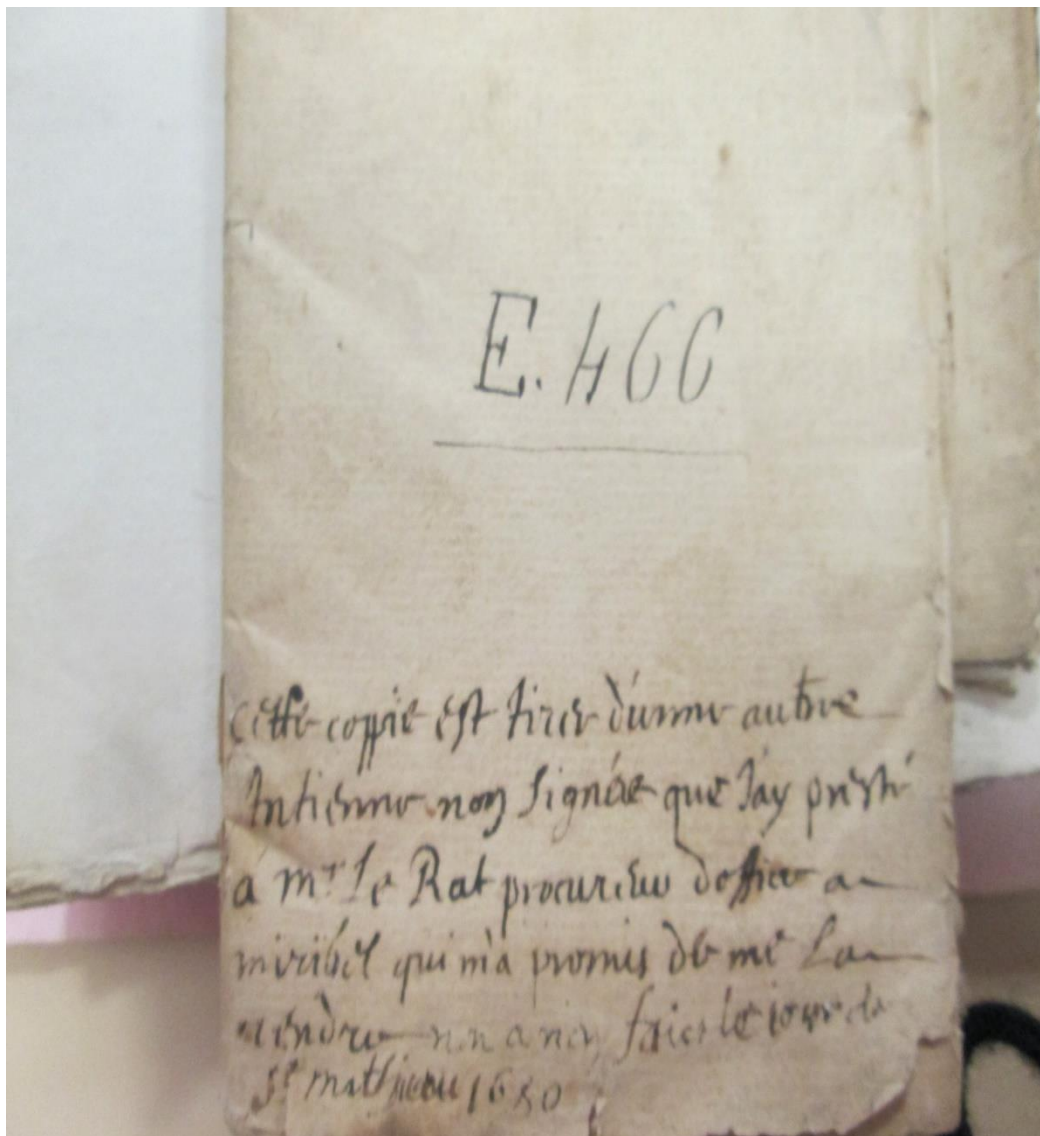 E. 466
Cette coppie est tirer d'unne autre
Intienne non signéé que J'ay presté
a mr. le Rat procureur doffice a
miribel qui m'a promis de me La
rendre faict le jour de
st mathieu 1650